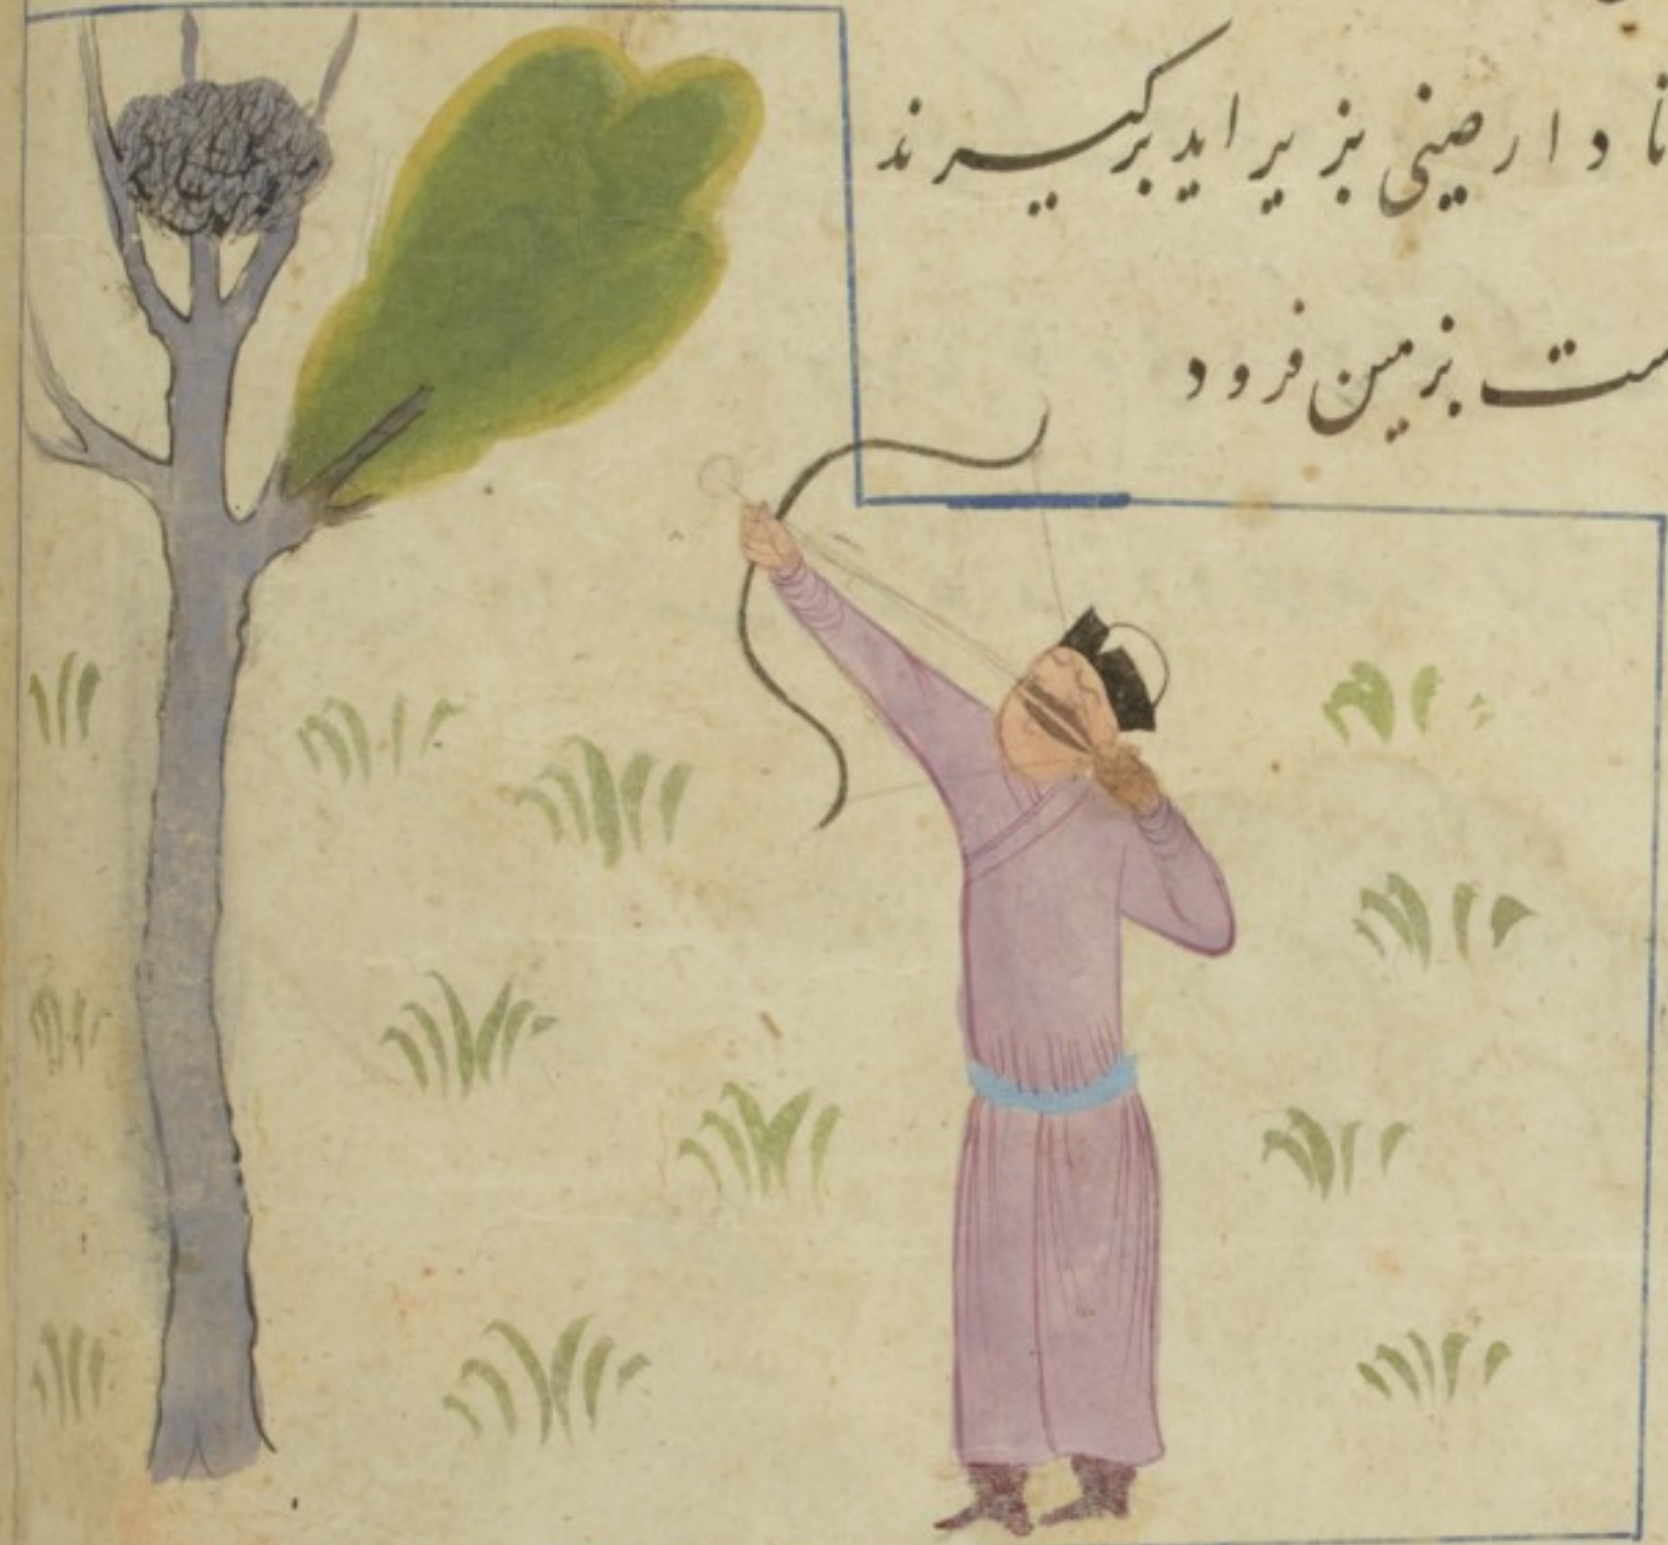 تا دارصینی بزیر اید برگیرند
ست بزمین فرود